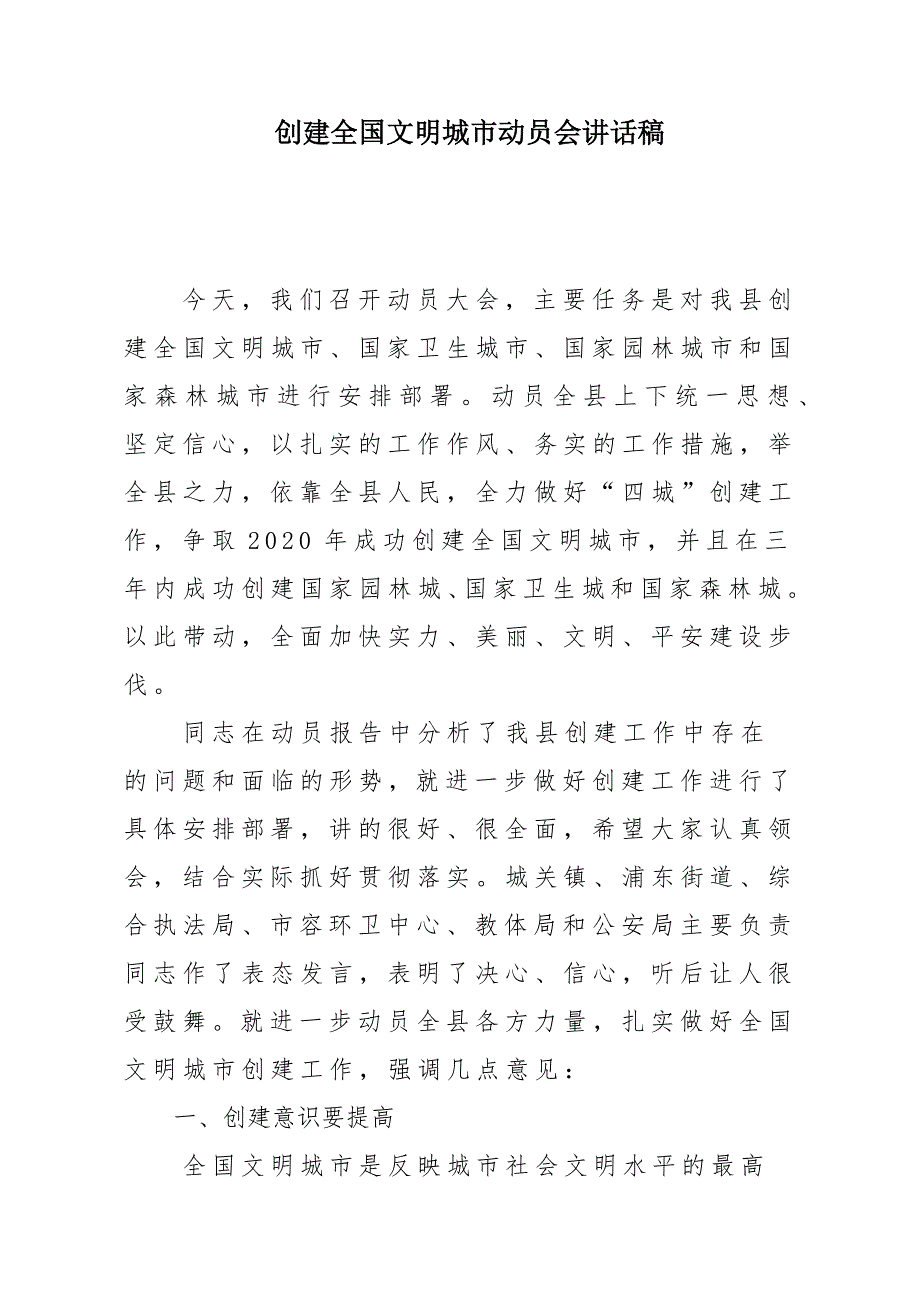 创建全国文明城市动员会讲话稿
今天，我们召开动员大会，主要任务是对我县创
建全国文明城市、国家卫生城市、国家园林城市和国
家森林城市进行安排部署。动员全县上下统一思想、
坚定信心，以扎实的工作作风、务实的工作措施，举
全县之力，依靠全县人民，全力做好“四城”创建工
作，争取 2020 年成功创建全国文明城市，并且在三
年内成功创建国家园林城、国家卫生城和国家森林城。
以此带动，全面加快实力、美丽、文明、平安建设步
伐。
同志在动员报告中分析了我县创建工作中存在
的问题和面临的形势，就进一步做好创建工作进行了
具体安排部署，讲的很好、很全面，希望大家认真领
会，结合实际抓好贯彻落实。城关镇、浦东街道、综
合执法局、市容环卫中心、教体局和公安局主要负责
同志作了表态发言，表明了决心、信心，听后让人很
受鼓舞。就进一步动员全县各方力量，扎实做好全国
文明城市创建工作，强调几点意见：
一、创建意识要提高
全国文明城市是反映城市社会文明水平的最高